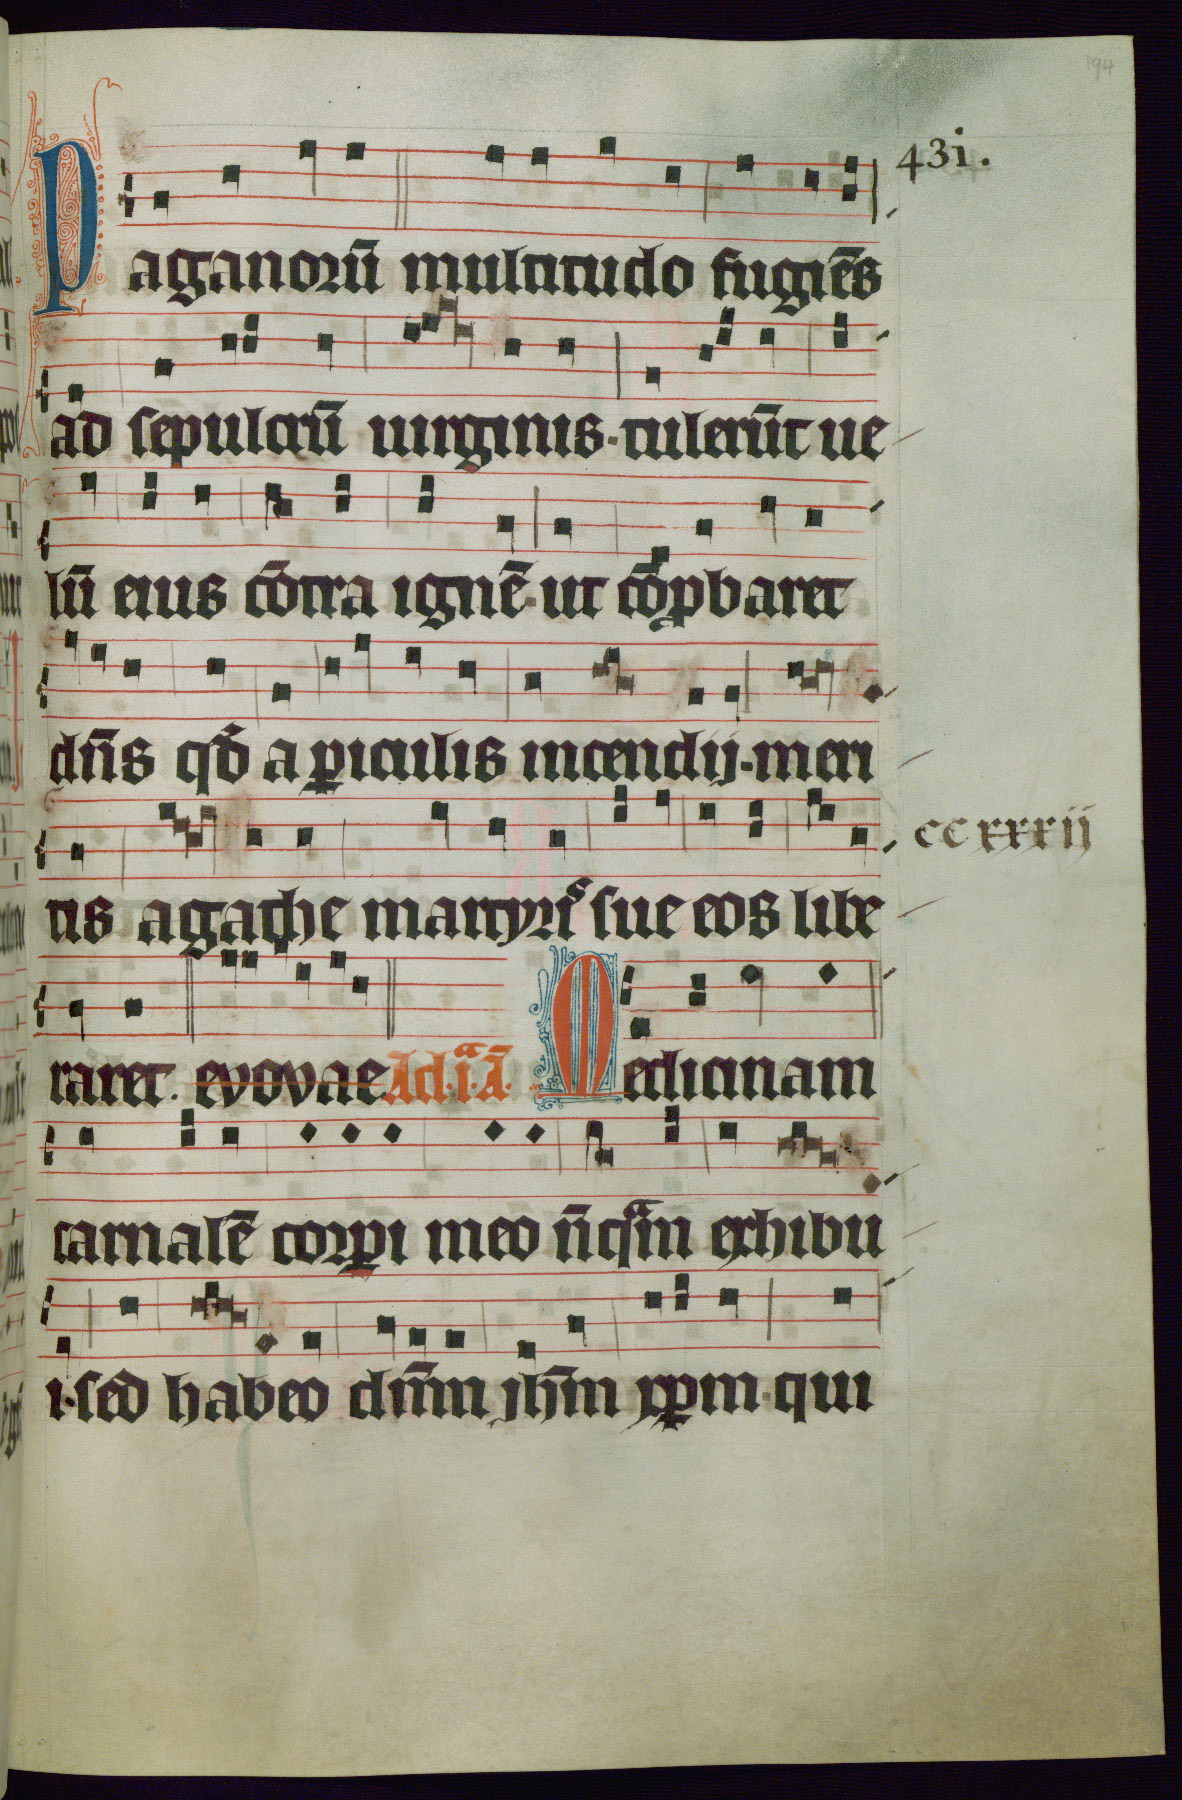 194
431.
Paganorū multitudo fugiēs
ad sepulcrū uirginis · tulerūt ue
lū eius cōtra ignē · ut cōpbaret
dn̄s qd̄ a piculis incendij · meri
ccxxxii
tis agathe martyrꝭ sue eos libe
raret. evovae Ad .i. ā. Medicinam
carnalē corpi meo n̄qᵃm exhibu
i · sed habeo dn̄m jhm̄ xpm · qui